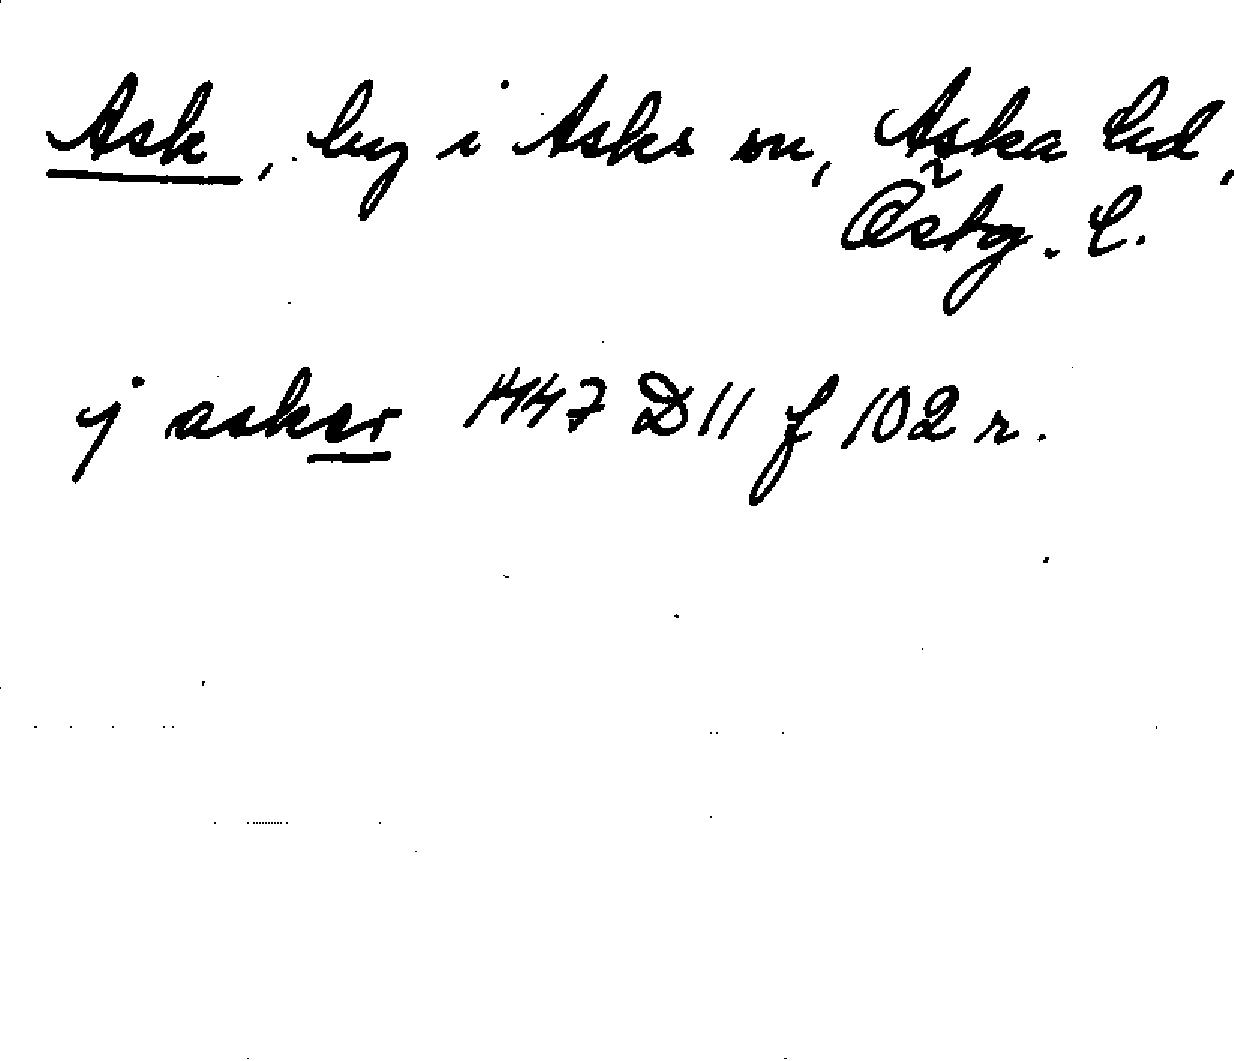 Ask, by i Asks sn, Aska hd,
Östg. l.
j asker 1447 D11 f 102 r.